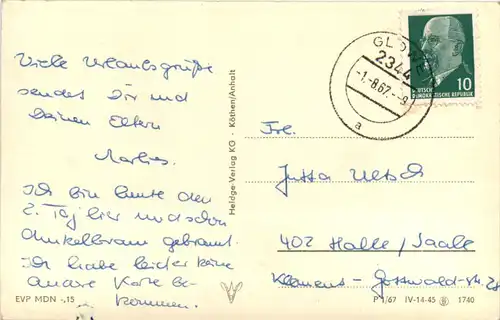 Viele Urlaubsgrüße
sendet Dir und
Deinen Eltern
Marlies.
Ich bin heute den
2. Tag hier und schon
dunkelbraun gebrannt.
Ich habe leider keine
andre Karte be-
kommen.
EVP MDN -,15
Heldge-Verlag KG · Köthen/Anhalt
2344
-1.-8.67.-
a
10
DEUTSCHE
DEMOKRATISCHE REPUBLIK
Frl.
Jutta
402 Halle/Saale
Klement-Gottwald-Str. 28
P 1/67 IV-14-45 1740